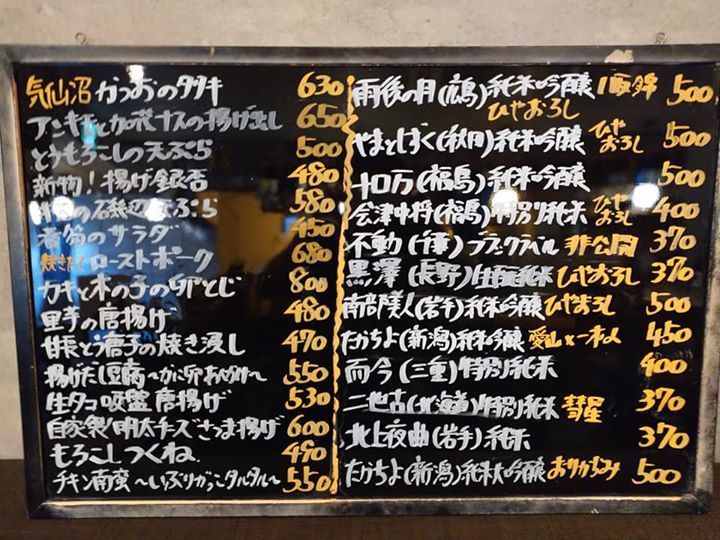 気仙沼 かつおのタタキ 630
アンキモと加茂ナスの揚げ出し 650
とうもろこしの天ぷら 500
新物！揚げ銀杏 480
の磯辺天ぷら 580
香菊のサラダ 450
焼きたて ローストポーク 680
カキと木の子の卵とじ 800
里芋の唐揚げ 480
甘長とう唐子の焼き浸し 470
揚げだし豆腐〜かに卵あんかけ〜 550
生タコ吸盤唐揚げ 530
自家製明太チーズさつま揚げ 600
もろこしつくね 490
チキン南蛮 〜いぶりがっこタルタル〜 550
雨後の月(広島)純米吟醸 ひやおろし 500
やまとしずく(秋田)純米吟醸 ひやおろし 500
十ロ万(福島)純米吟醸 500
会津中将(福島)特別純米 ひやおろし 400
不動(千葉)ブラックラベル 非公開 370
黒澤(長野)生酛純米 ひやおろし 370
南部美人(岩手)純米吟醸 ひやおろし 500
たかちよ(新潟)純米吟醸 愛山×一本〆 450
而今(三重)特別純米 400
二世古(北海道)特別純米 彗星 370
北上夜曲(岩手)純米 370
たかちよ(新潟)純米大吟醸 おりがらみ 500